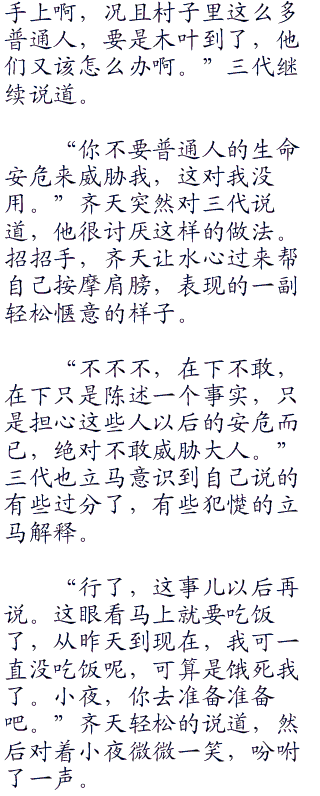 手上啊，况且村子里这么多
普通人，要是木叶到了，他
们又该怎么办啊。”三代继
续说道。
“你不要普通人的生命
安危来威胁我，这对我没
用。”齐天突然对三代说
道，他很讨厌这样的做法。
招招手，齐天让水心过来帮
自己按摩肩膀，表现的一副
轻松惬意的样子。
“不不不，在下不敢，
在下只是陈述一个事实，只
是担心这些人以后的安危而
已，绝对不敢威胁大人。”
三代也立马意识到自己说的
有些过分了，有些犯憷的立
马解释。
“行了，这事儿以后再
说。这眼看马上就要吃饭
了，从昨天到现在，我可一
直没吃饭呢，可算是饿死我
了。小夜，你去准备准备
吧。”齐天轻松的说道，然
后对着小夜微微一笑，吩咐
了一声。